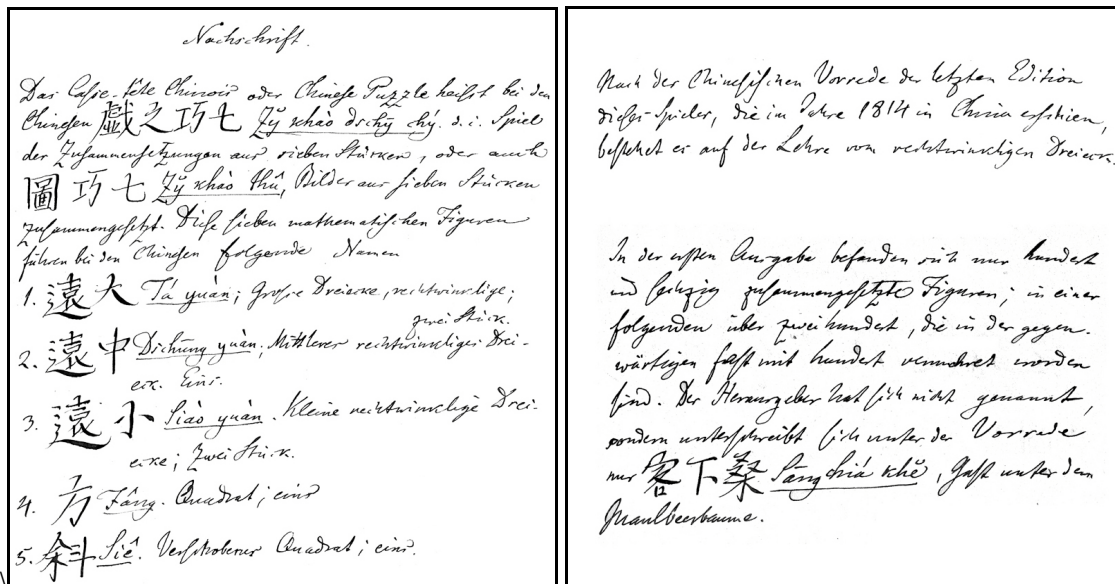 Nachschrift.
Das Casse-tête Chinois oder Chinese Puzzle heißt bei den
Chinesen 戯之巧七 Zỹ khào dschȳ chý. d. i. Spiel
der Zusammensetzungen aus sieben Stücken, oder auch
圖巧七 Zỹ khào thû, Bilder aus sieben Stücken
zusammengesetzt. Diese sieben mathematischen Figuren
führen bei den Chinesen folgende Namen
1. 遠大 Tá yuàn; Große Dreiecke, rechtwinklige;
zwei Stück.
2. 遠中 Dschung yuàn. Mittleres rechtwinkliges Drei-
eck. Eins.
3. 遠小 Siào yuàn. Kleine rechtwinklige Drei-
ecke; Zwei Stück.
4. 方 Fāng. Quadrat; eins
5. 斜 Siê. Verschobenes Quadrat; eins.
Nach der Chinesischen Vorrede der letzten Edition
dieses Spieles, die im Jahre 1814 in China erschien,
bestehet es auf der Lehre vom rechtwinkligen Dreieck.
In der ersten Ausgabe befanden sich nur hundert
und sechzig zusammengesetzte Figuren; in einer
folgenden über zweihundert, die in der gegen-
wärtigen fast mit hundert vermehret worden
sind. Der Herausgeber hat sich nicht genannt,
sondern unterschreibt sich unter der Vorrede
nur 客下桑 Sāng chiá khě, Gast unter dem
Maulbeerbaume.